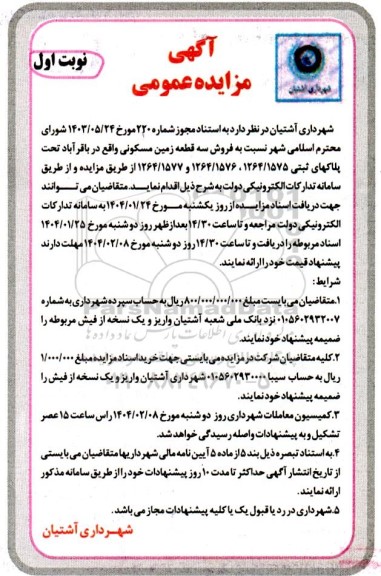 آگهی
مزایده عمومی
نوبت اول
شهرداری آشتیان
شهرداری آشتیان در نظر دارد به استناد مجوز شماره ۲۲۰ مورخ ۱۴۰۳/۰۵/۲۴ شورای
محترم اسلامی شهر نسبت به فروش سه قطعه زمین مسکونی واقع در باقرآباد تحت
پلاکهای ثبتی ۱۲۶۴/۱۵۷۵ ، ۱۲۶۴/۱۵۷۶ و ۱۲۶۴/۱۵۷۷ از طریق مزایده و از طریق
سامانه تدارکات الکترونیکی دولت به شرح ذیل اقدام نمایــد. متقاضیان می تــوانند
جهت دریافت اسناد مزایــده از روز یکشنبه مــورخ ۱۴۰۴/۰۱/۲۴ به سامانه تدارکات
الکترونیکی دولت مراجعه و تا ساعت ۱۴/۳۰ بعدازظهر روز دوشنبه مورخ ۱۴۰۴/۰۱/۲۵
اسناد مربوطه را دریافت و تا ساعت ۱۴/۳۰ روز دوشنبه مورخ ۱۴۰۴/۰۲/۰۸ مهلت دارند
پیشنهاد قیمت خود را ارائه نمایند.
شرایط :
۱.متقاضیان می بایست مبلغ ۸۰۰/۰۰۰/۰۰۰/ ریال به حساب سپرده شهرداری به شماره
۰۱۰۵۶۰۲۹۳۲۰۰۷ نزد بانک ملی شعبه آشتیان واریز و یک نسخه از فیش مربوطه را
ضمیمه پیشنهاد خود نمایند.
۲.کلیه متقاضیان شرکت در مزایده می بایستی جهت خرید اسناد مزایده مبلغ ۱/۰۰۰/۰۰۰
ریال به حساب سیبا ۰۱۰۵۶۰۲۹۳۰۰۰۰ شهرداری آشتیان واریز و یک نسخه از فیش را
ضمیمه پیشنهاد خود نمایند.
۳.کمیسیون معاملات شهرداری روز دوشنبه مورخ ۱۴۰۴/۰۲/۰۸ راس ساعت ۱۵ عصر
تشکیل و به پیشنهادات واصله رسیدگی خواهد شد.
۴.به استناد تبصره ذیل بند ۵ از ماده ۵ آیین نامه مالی شهرداریها متقاضیان می بایستی
از تاریخ انتشار آگهی حداکثر تا مدت ۱۰ روز پیشنهادات خود را از طریق سامانه مذکور
ارائه نمایند.
۵.شهرداری در رد یا قبول یک یا کلیه پیشنهادات مجاز می باشد.
شهــرداری آشتیان
ParsNamadData